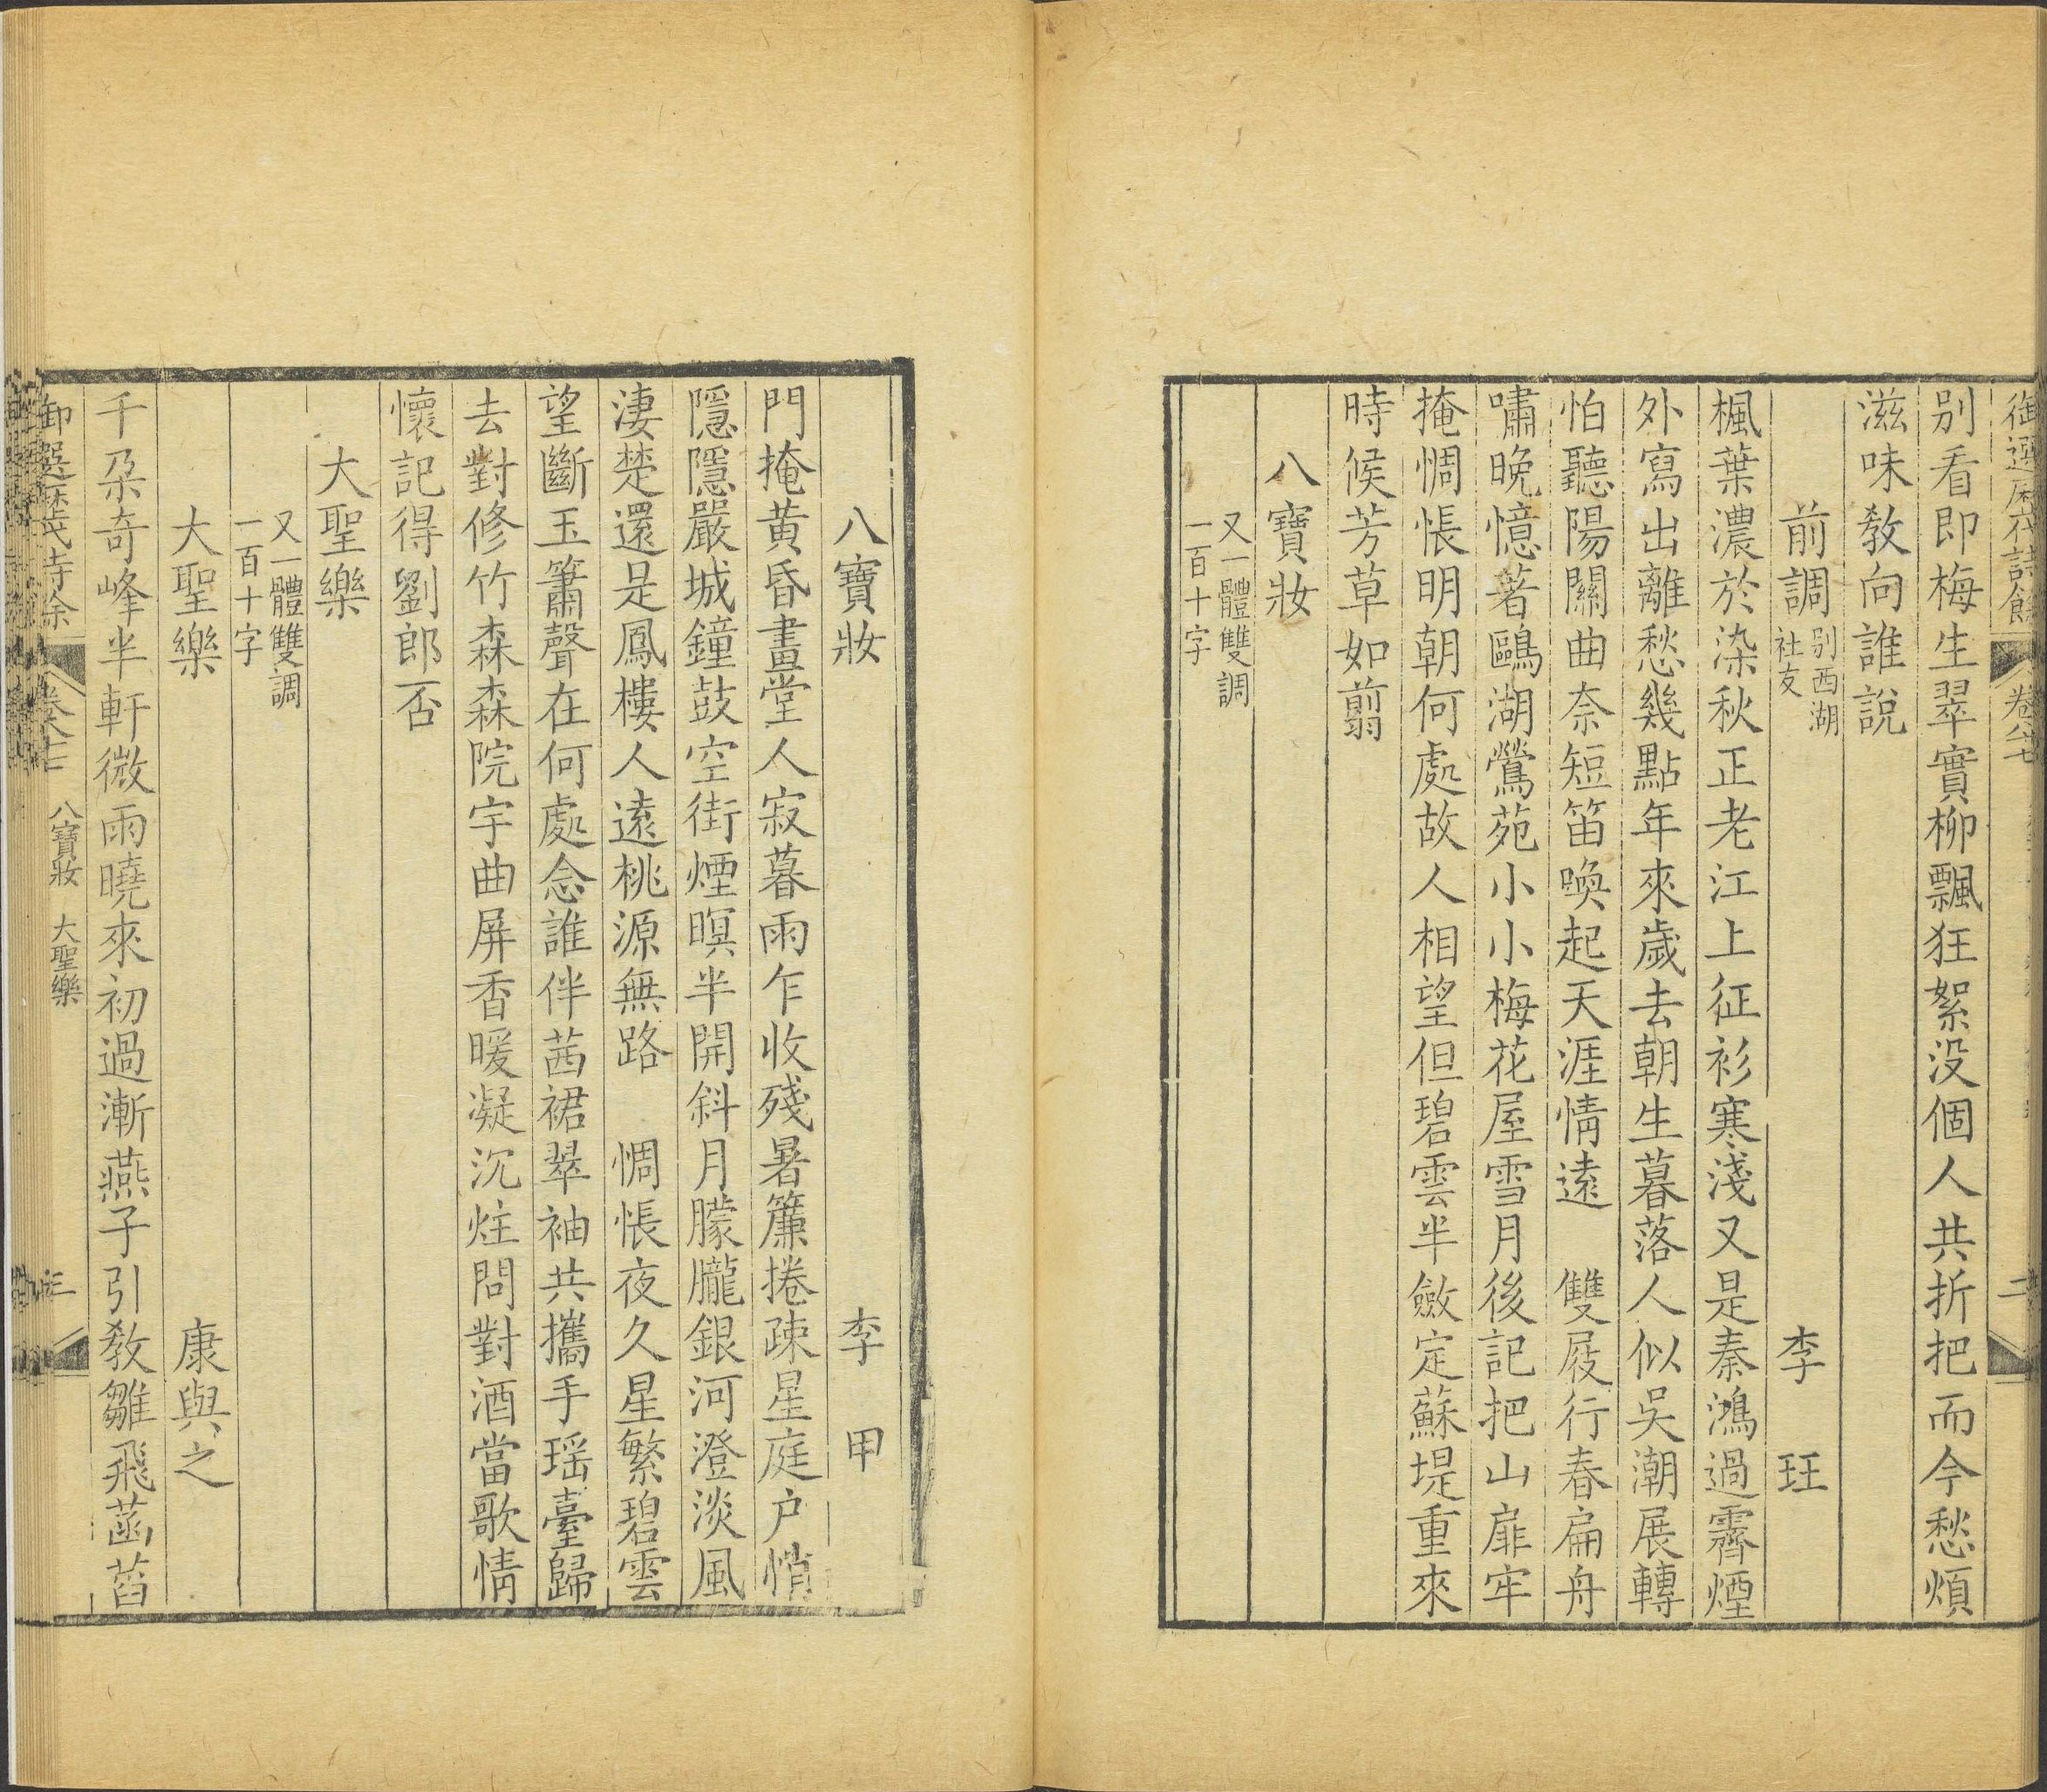 御選歷代詩餘 卷八十七 二
别看即梅生翠實柳飄狂絮没個人共折把而今愁煩
滋味教向誰說
前調 别西湖社友 李玨
楓葉濃於染秋正老江上征衫寒淺又是秦鴻過霽煙
外寫出離愁幾點年來歲去朝生暮落人似吳潮展轉
怕聽陽關曲奈短笛喚起天涯情遠 雙屐行春扁舟
嘯晚憶著鷗湖鶯苑小小梅花屋雪月後記把山扉牢
掩惆悵明朝何處故人相望但碧雲半斂定蘇堤重來
時候芳草如翦
八寶妝
又一體雙調
一百十字
八寶妝 李甲
門掩黄昏畫堂人寂暮雨乍收殘暑簾捲疎星庭户悄
隱隱嚴城鐘鼓空街煙暝半開斜月朦朧銀河澄淡風
淒楚還是鳳樓人遠桃源無路 惆悵夜久星繁碧雲
望斷玉簫聲在何處念誰伴茜裙翠袖共攜手瑶臺歸
去對修竹森森院宇曲屏香暖凝沉炷問對酒當歌情
懷記得劉郎否
大聖樂
又一體雙調
一百十字
大聖樂 康與之
千朶奇峰半軒微雨曉來初過漸燕子引教雛飛菡萏
御選歷代詩餘 卷八十七 八寶妝 大聖樂 三